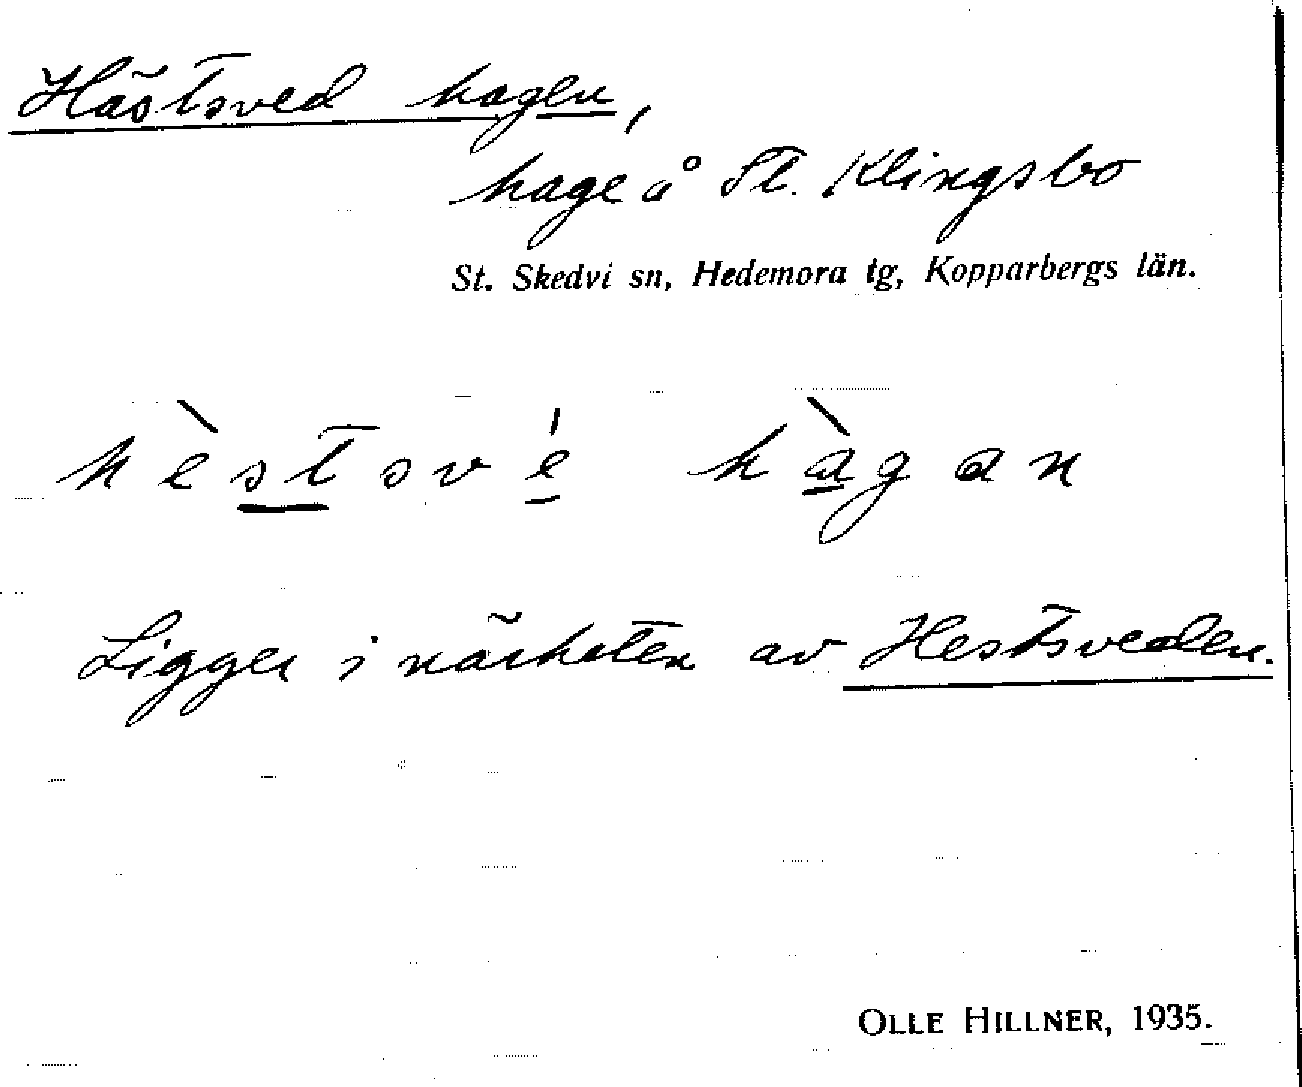 Hästsved hagen,
hage å St. Klingsbo
St. Skedvi sn, Hedemora tg, Kopparbergs län.
hèstsvé hàgan
Ligger i närheten av Hestsveden.
OLLE HILLNER, 1935.